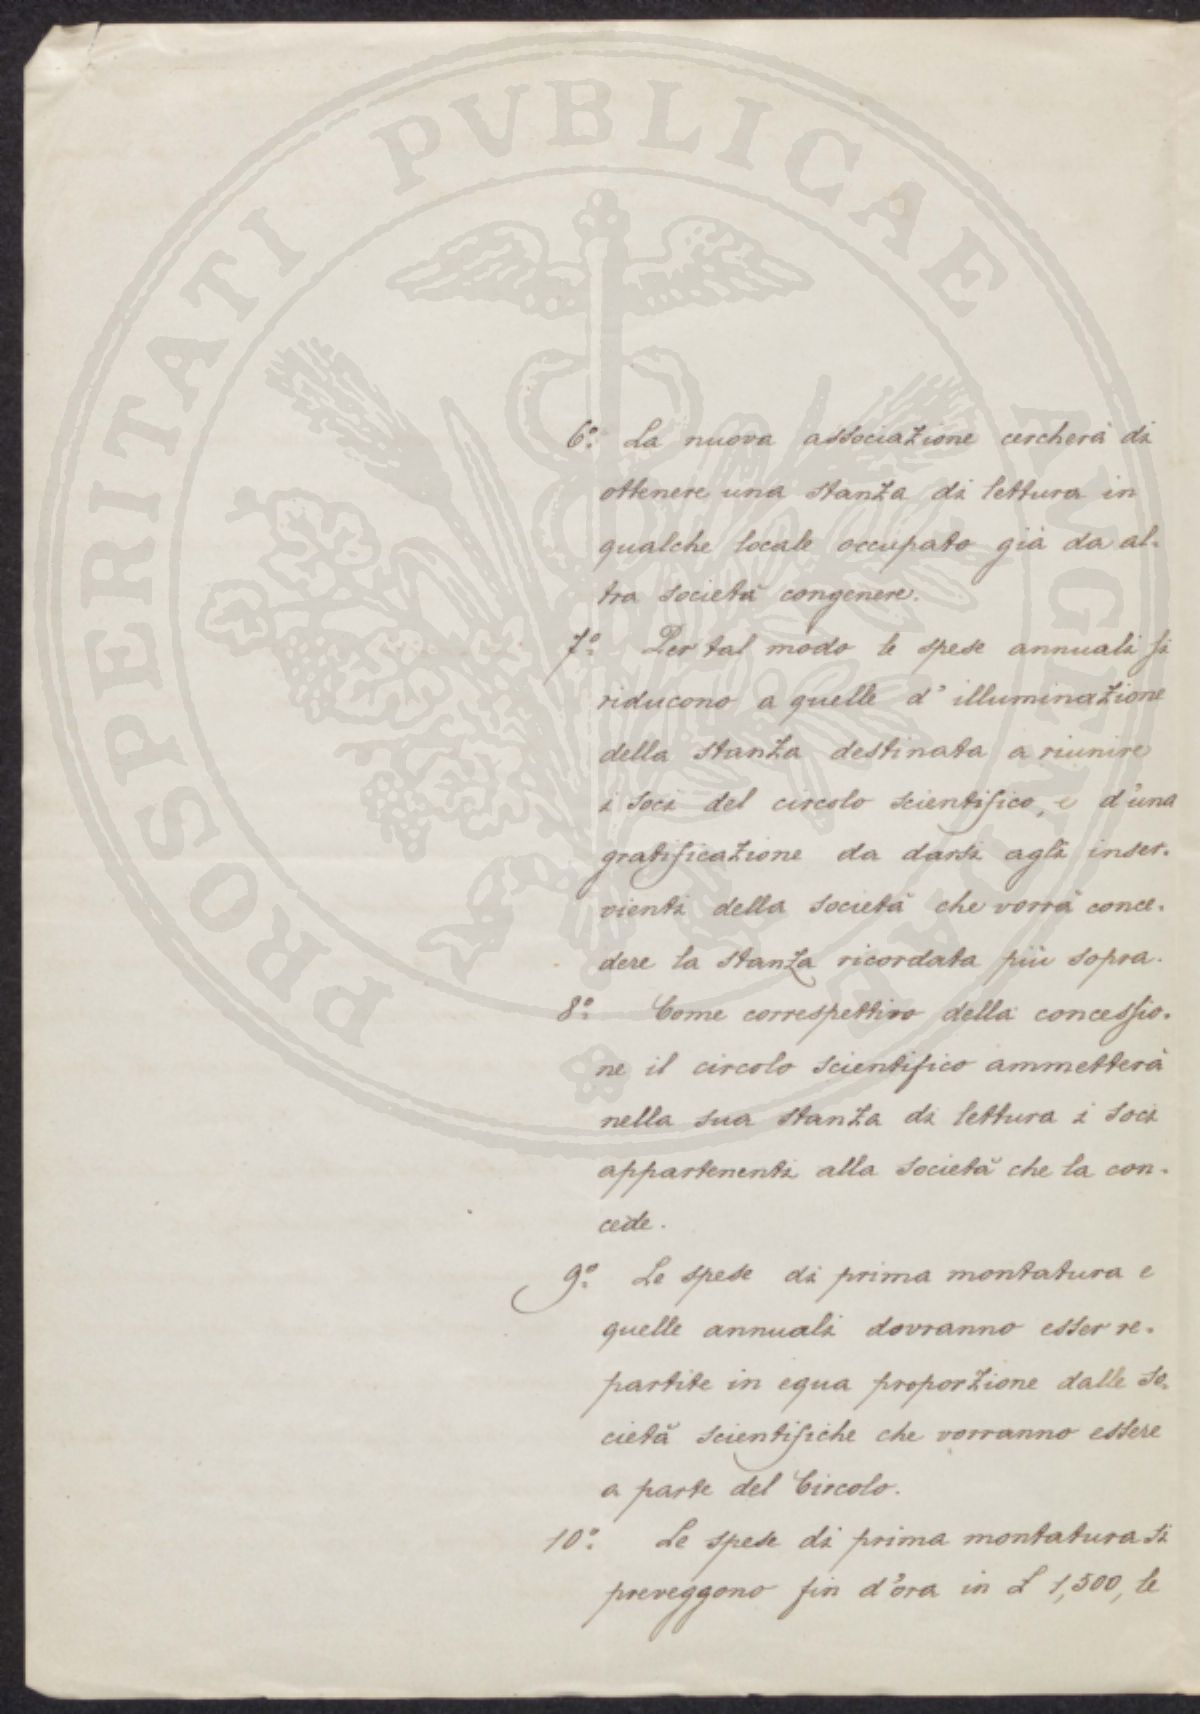 PROSPERITATI PVBLICAE AVGENDAE
6º La nuova associazione cercherà di
ottenere una stanza di lettura in
qualche locale occupato già da al-
tra società congenere.
7º Per tal modo le spese annuali si
riducono a quelle d'illuminazione
della stanza destinata a riunire
i soci del circolo scientifico, e d'una
gratificazione da darsi agli inser-
vienti della società che vorrà conce-
dere la stanza ricordata più sopra.
8º Come correspettivo della concessio-
ne il circolo scientifico ammetterà
nella sua stanza di lettura i soci
appartenenti alla società che la con-
cede.
9º Le spese di prima montatura e
quelle annuali dovranno esser re-
partite in equa proporzione dalle so-
cietà scientifiche che vorranno essere
a parte del Circolo.
10º Le spese di prima montatura si
preveggono fin d'ora in L 1,500, le